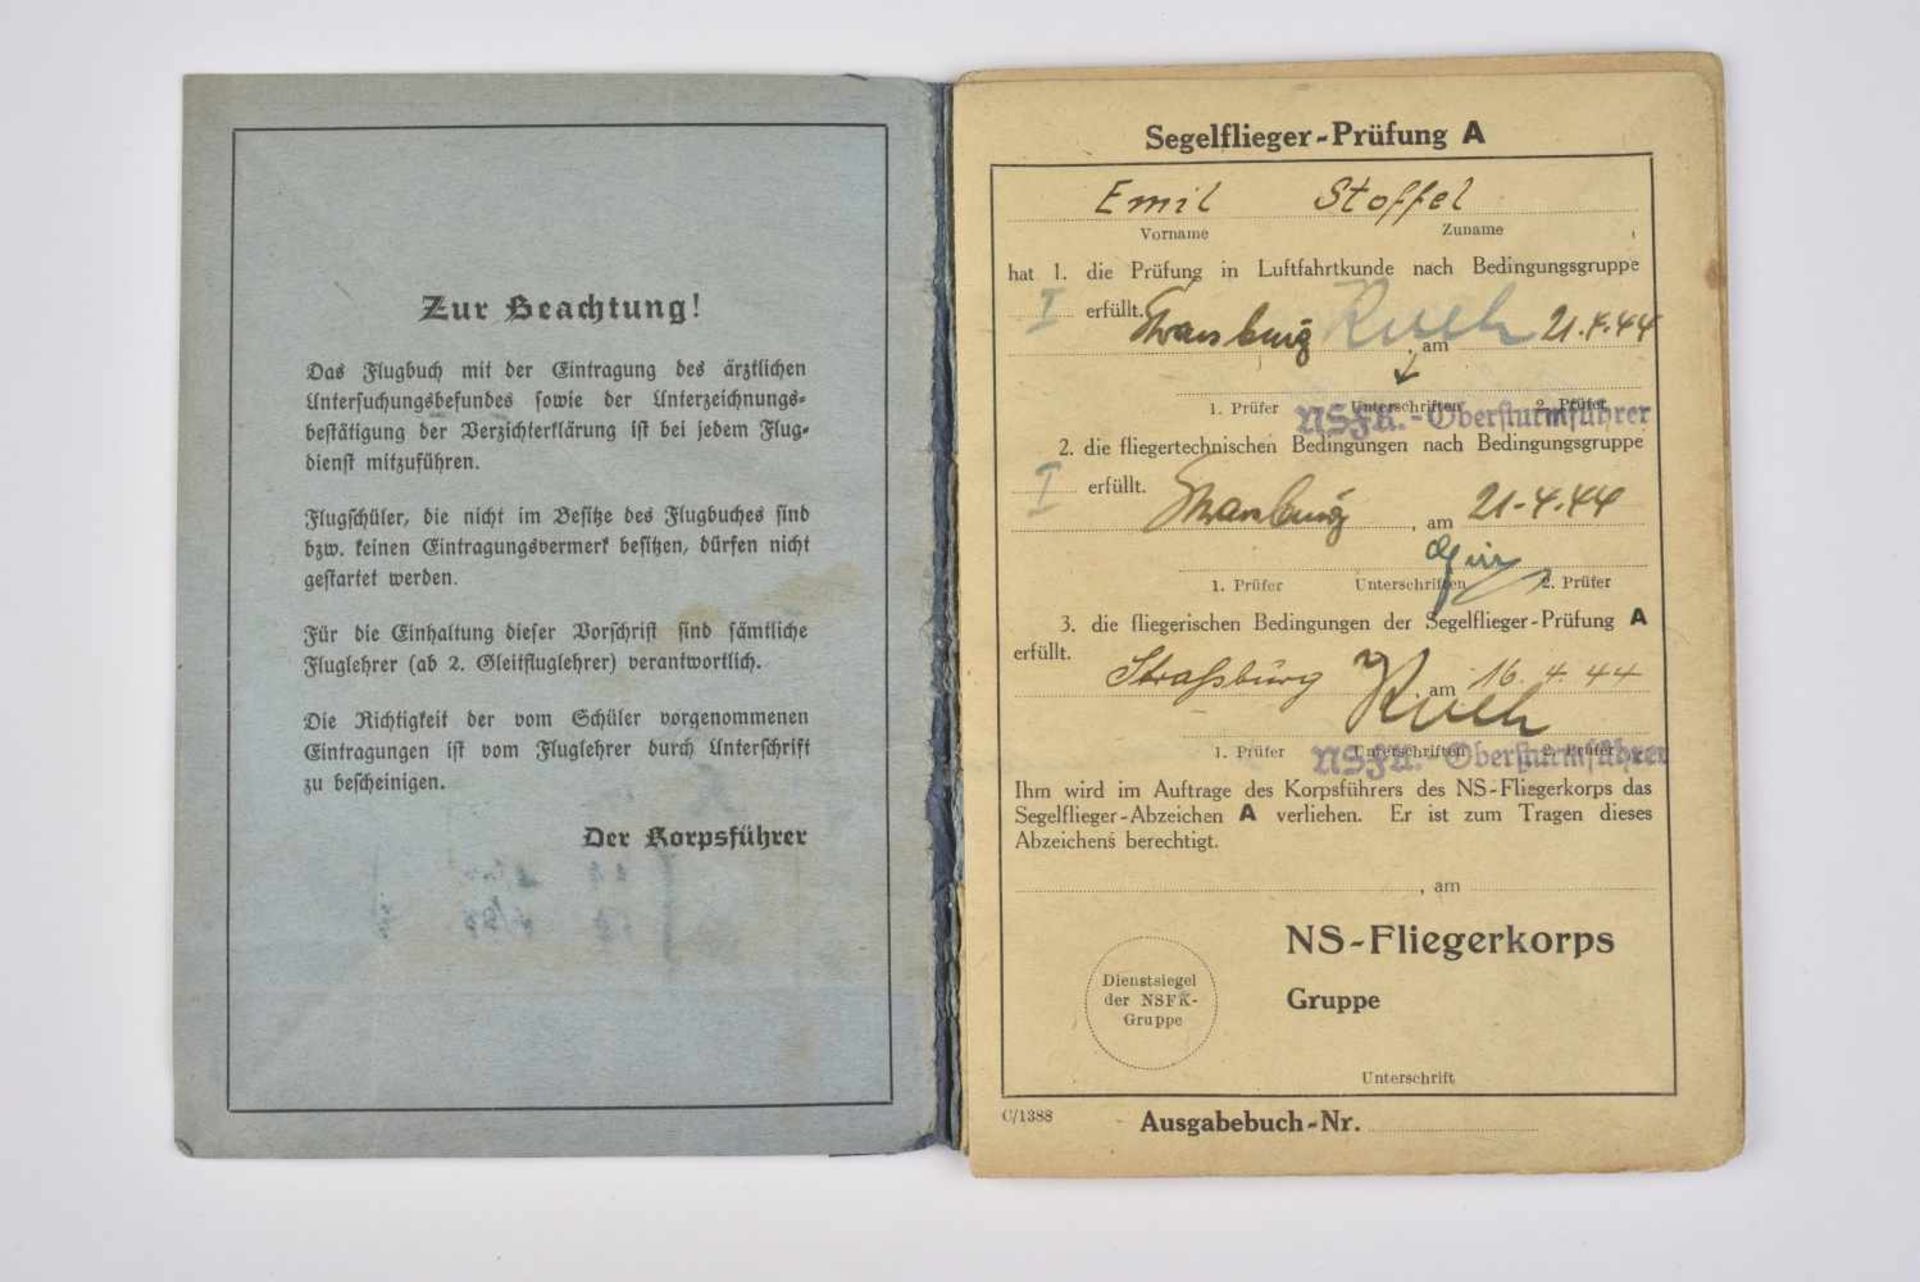 Zur Beachtung!
Das Flugbuch mit der Eintragung des ärztlichen
Untersuchungsbefundes sowie der Unterzeichnungs-
bestätigung der Verzichterklärung ist bei jedem Flug-
dienst mitzuführen.
Flugschüler, die nicht im Besitze des Flugbuches sind
bzw. keinen Eintragungsvermerk besitzen, dürfen nicht
gestartet werden.
Für die Einhaltung dieser Vorschrift sind sämtliche
Fluglehrer (ab 2. Gleitfluglehrer) verantwortlich.
Die Richtigkeit der vom Schüler vorgenommenen
Eintragungen ist vom Fluglehrer durch Unterschrift
zu bescheinigen.
Der Korpsführer
Segelflieger-Prüfung A
Emil Stoffel
Vorname Zuname
hat 1. die Prüfung in Luftfahrtkunde nach Bedingungsgruppe
I erfüllt.
, am 21.4.44
1. Prüfer Unterschriften 2. Prüfer
NSFK.-Obersturmführer
2. die fliegertechnischen Bedingungen nach Bedingungsgruppe
I erfüllt.
, am 21-4.44
1. Prüfer Unterschriften 2. Prüfer
3. die fliegerischen Bedingungen der Segelflieger-Prüfung A
erfüllt.
Straßburg , am 16.4.44
1. Prüfer Unterschriften 2. Prüfer
NSFK.-Obersturmführer
Ihm wird im Auftrage des Korpsführers des NS-Fliegerkorps das
Segelflieger-Abzeichen A verliehen. Er ist zum Tragen dieses
Abzeichens berechtigt.
, am
NS-Fliegerkorps
Dienstsiegel
der NSFK-
Gruppe
Gruppe
Unterschrift
C/1388
Ausgabebuch-Nr.